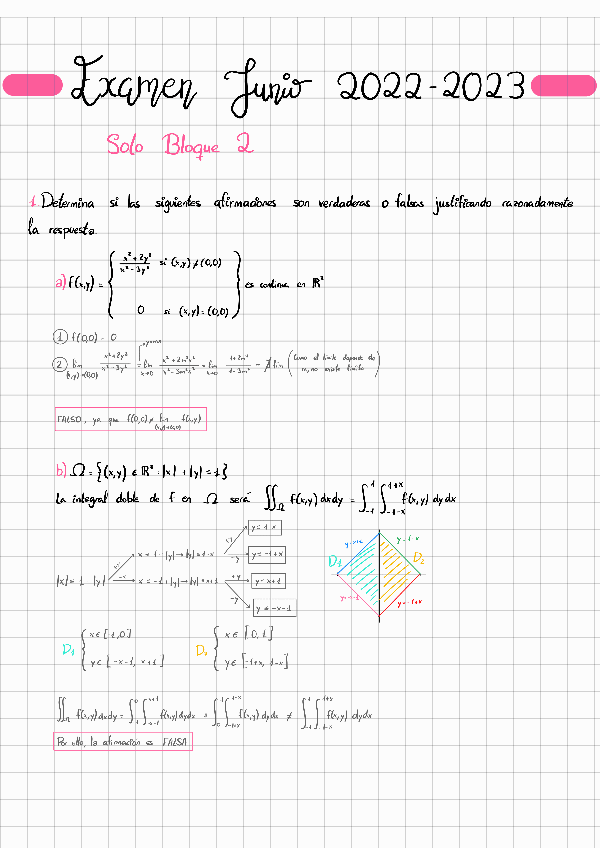 Examen Junio 2022-2023
Solo Bloque 2
1. Determina si las siguientes afirmaciones son verdaderas o falsas justificando razonadamente
la respuesta.
a) f(x,y) = { x²+2y² / x²-3y² si (x,y) ≠ (0,0)
0 si (x,y) = (0,0) } es continua en ℝ²
① f(0,0) = 0
② lim (x,y)→(0,0) x²+2y² / x²-3y² = lim x→0 x²+2m²x² / x²-3m²x² = lim x→0 1+2m² / 1-3m² = ∄ lim (Como el límite depende de
m, no existe límite)
FALSO, ya que f(0,0) ≠ lim (x,y)→(0,0) f(x,y)
b) Ω = {(x,y) ∈ ℝ² : |x| + |y| ≤ 1}
La integral doble de f en Ω será ∬Ω f(x,y) dxdy = ∫₋₁¹ ∫₋₁₋ₓ¹⁺ˣ f(x,y) dydx
|x| = 1 - |y|
+x x = 1 - |y| → |y| = 1-x
-x x = -1 + |y| → |y| = x+1
+y y = 1-x
-y y = -1+x
+y y = x+1
-y y = -x-1
y=x+1 y=1-x
D₁ D₂
y=-x-1 y=-1+x
D₁ { x ∈ [-1,0]
y ∈ [-x-1, x+1]
D₂ { x ∈ [0,1]
y ∈ [-1+x, 1-x]
∬Ω f(x,y) dxdy = ∫₋₁⁰ ∫₋ₓ₋₁ˣ⁺¹ f(x,y) dydx + ∫₀¹ ∫₋₁₊ₓ¹⁻ˣ f(x,y) dydx ≠ ∫₋₁¹ ∫₋₁₋ₓ¹⁺ˣ f(x,y) dydx
Por ello, la afirmación es FALSA